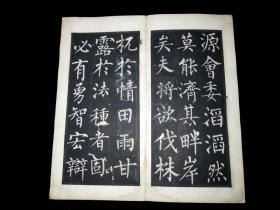 源會委滔滔然
莫能濟其畔岸
矣夫將欲伐株
杌於情田雨甘
露於法種者固
必有勇智宏辯